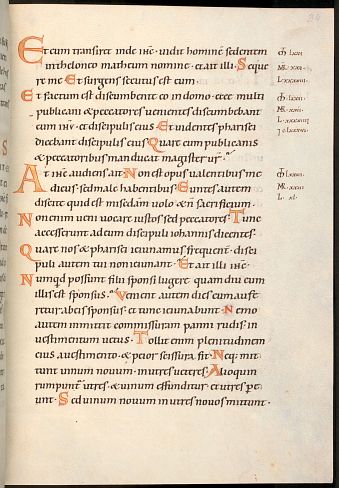 Et cum transiret inde ihc · uidit hominē sedentem
in theloneo matheum nomine · et ait illi · Seque
re me · Et surgens secutus est eum ·
Et factum est discumbente eo in domo · ecce multi
publicani & peccatores uenientes discumbebant
cum ihu · & discipulis eius · Et uidentes pharisei
dicebant discipulis eius · Quare cum publicanis
& peccatoribus manducat magister ur̄ ·
At ihc audiens ait · Non est opus ualentibus me
dicus · sed male habentibus · Euntes autem
discite quid est misedam uolo & ñ sacrificium ·
Non enim ueni uocare iustos sed peccatores · Tunc
accesserunt ad eum discipuli iohannis dicentes ·
Quare nos & pharisei ieiunamus frequent̄ · disci
puli autem tui non ieiunant · Et ait illi ihc ·
Numqd possunt filii sponsi lugere quam diu cum
illis est sponsus · Venient autem dies cum aufe
retur ab eis sponsus · et tunc ieiunabunt · Nemo
autem inmittit commissuram panni rudis · in
uestimentum uetus · Tollit enim plenitudinem
eius a uestimento · & peior scissura fit · Neq; mit
tunt uinum nouum in utres ueteres · Alioquin
rumpunt̄ utres · & uinum effunditur · et utres pe
unt · Sed uinum nouum in utres nouos mittunt ·